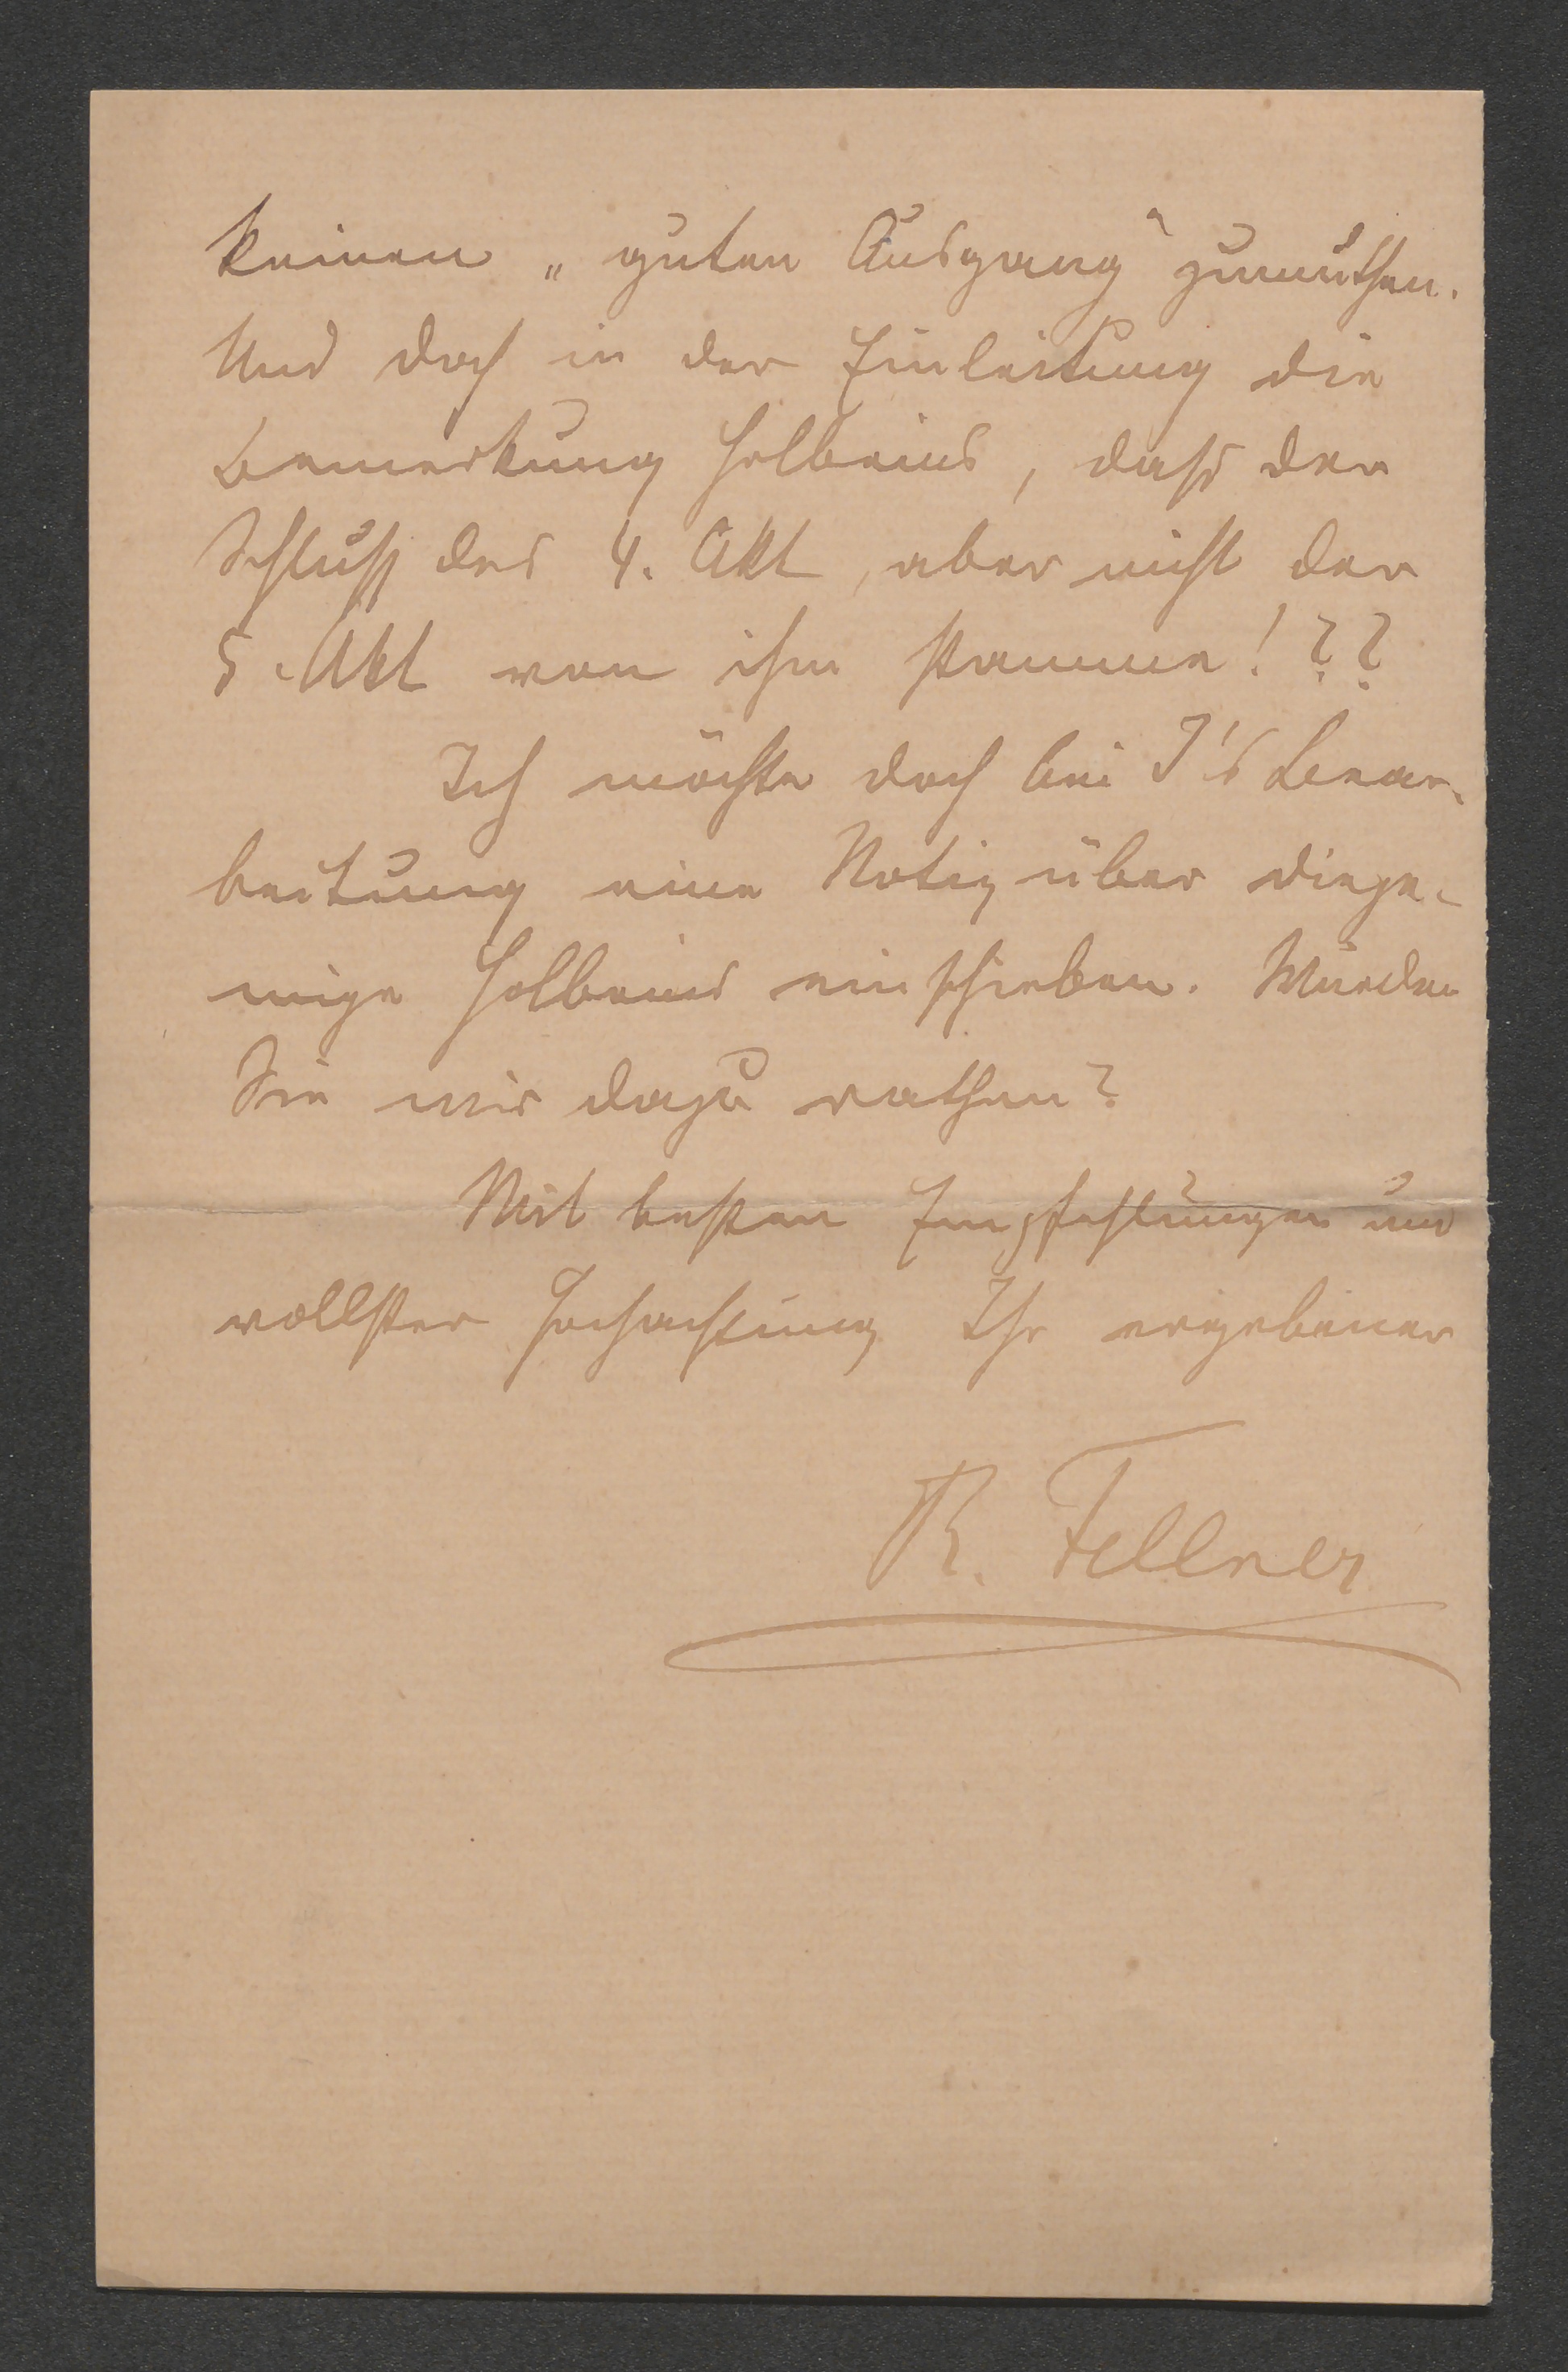 keinen „guten Ausgang“ zumuthen.
Und doch in der Einleitung die
Bemerkung Holbeins, dass der
Schluß des 4. Akt, aber nicht der
5. Akt von ihm stamme!??
Ich möchte doch bei I's Bear-
beitung eine Notiz über dieje-
nige Holbeins einschieben. Würden
Sie mir dazu rathen?
Mit besten Empfehlungen und
vollster Hochachtung Ihr ergebener
R. Fellner